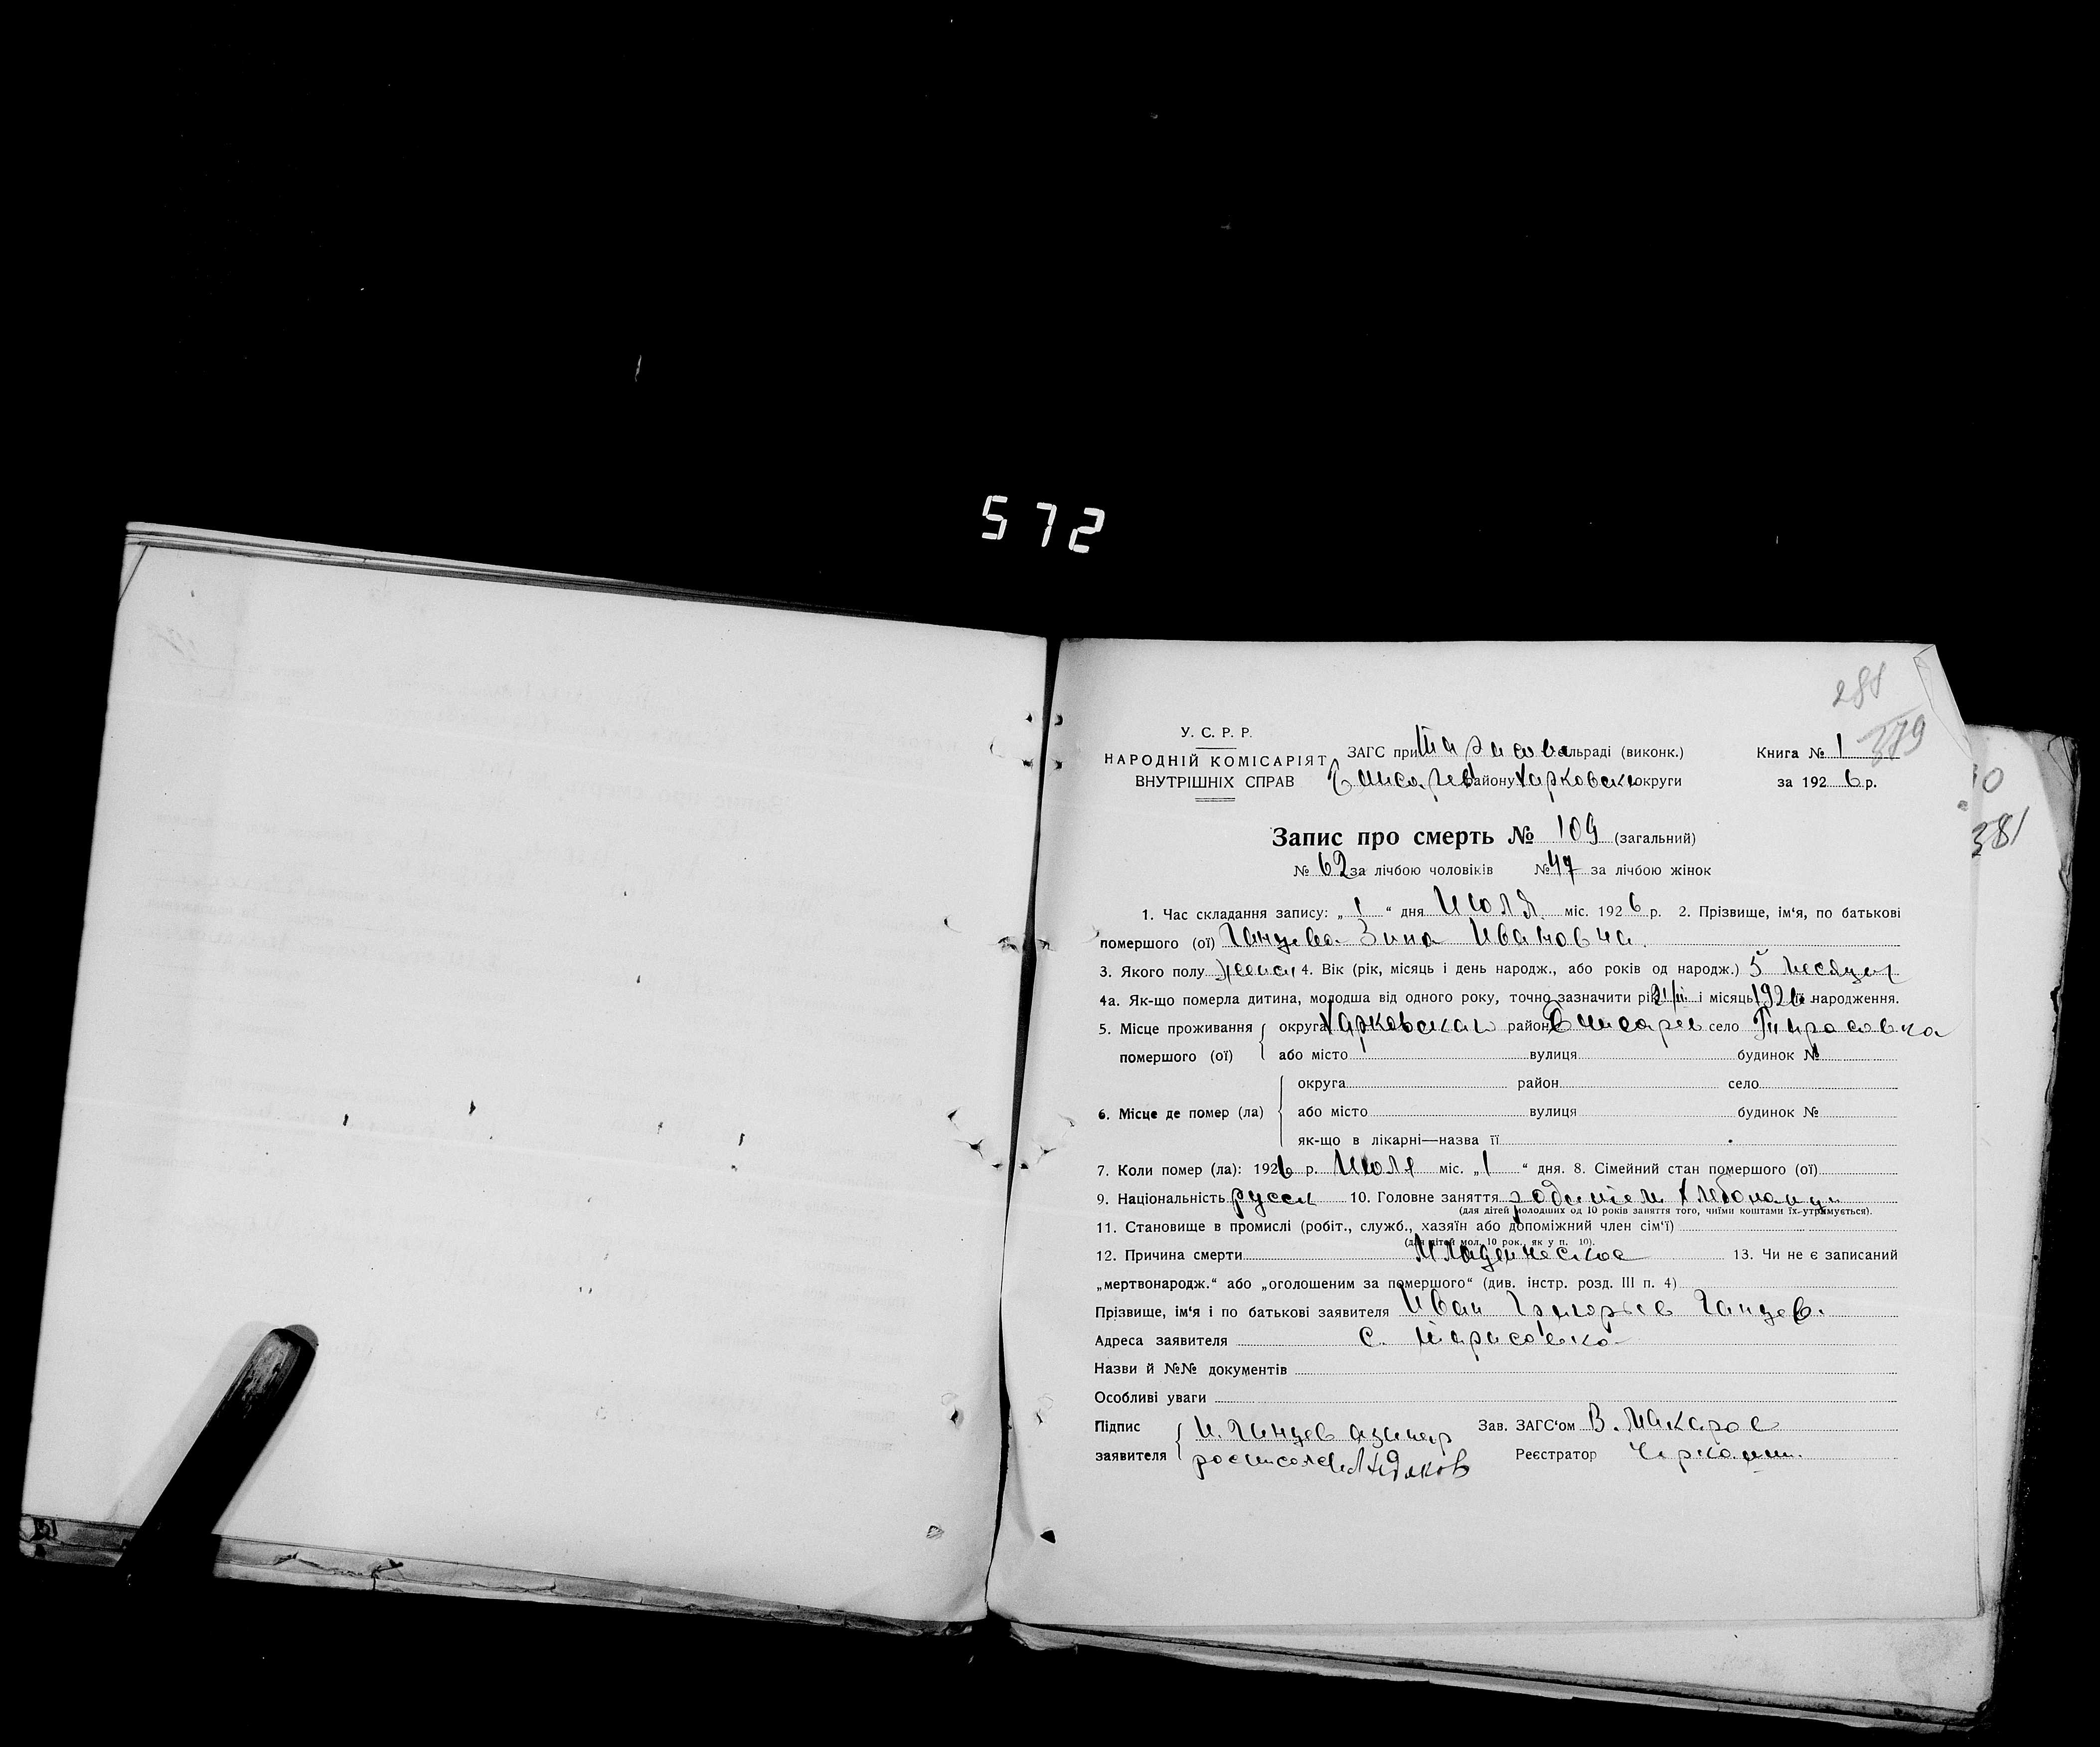 572
281
379
381
У. С. Р. Р.
НАРОДНІЙ КОМІСАРІЯТ
ВНУТРІШНІХ СПРАВ
ЗАГС при Тарасовс сільраді (виконк.)
району Харковской округи
Книга № 1
за 1926 р.
Запис про смерть № 109 (загальний)
№ 62 за лічбою чоловіків № 47 за лічбою жінок
1. Час складання запису: „ 1 “ дня Июля міс. 1926 р. 2. Прізвище, ім‘я, по батькові
помершого (ої) Ганцева Зина Ивановна
3. Якого полу женск 4. Вік (рік, місяць і день народж., або років од народж.) 5 месяцев
4а. Як-що померла дитина, молодша від одного року, точно зазначити рік і місяць 1926 її народження.
5. Місце проживання округа Харковская район село Тарасовка
помершого (ої) або місто вулиця будинок №
округа район село
6. Місце де помер (ла) або місто вулиця будинок №
як-що в лікарні—назва її
7. Коли помер (ла): 1926 р. Июля міс. „ 1 “ дня. 8. Сімейний стан помершого (ої)
9. Національність русск 10. Головне заняття
(для дітей молодших од 10 років заняття того, чиїми коштами їх утримується).
11. Становище в промислі (робіт., служб., хазяїн або допоміжний член сім‘ї)
(для дітей мол. 10 рок., як у п. 10).
12. Причина смерти Младенческое 13. Чи не є записаний
„мертвонародж.“ або „оголошеним за помершого“ (див. інстр. розд. III п. 4)
Прізвище, ім‘я і по батькові заявителя Иван Григорьев Ганцев.
Адреса заявителя с. Тарасовка
Назви й №№ документів
Особливі уваги
Підпис И. Ганцев Зав. ЗАГС‘ом В. Макаров
заявителя Реєстратор